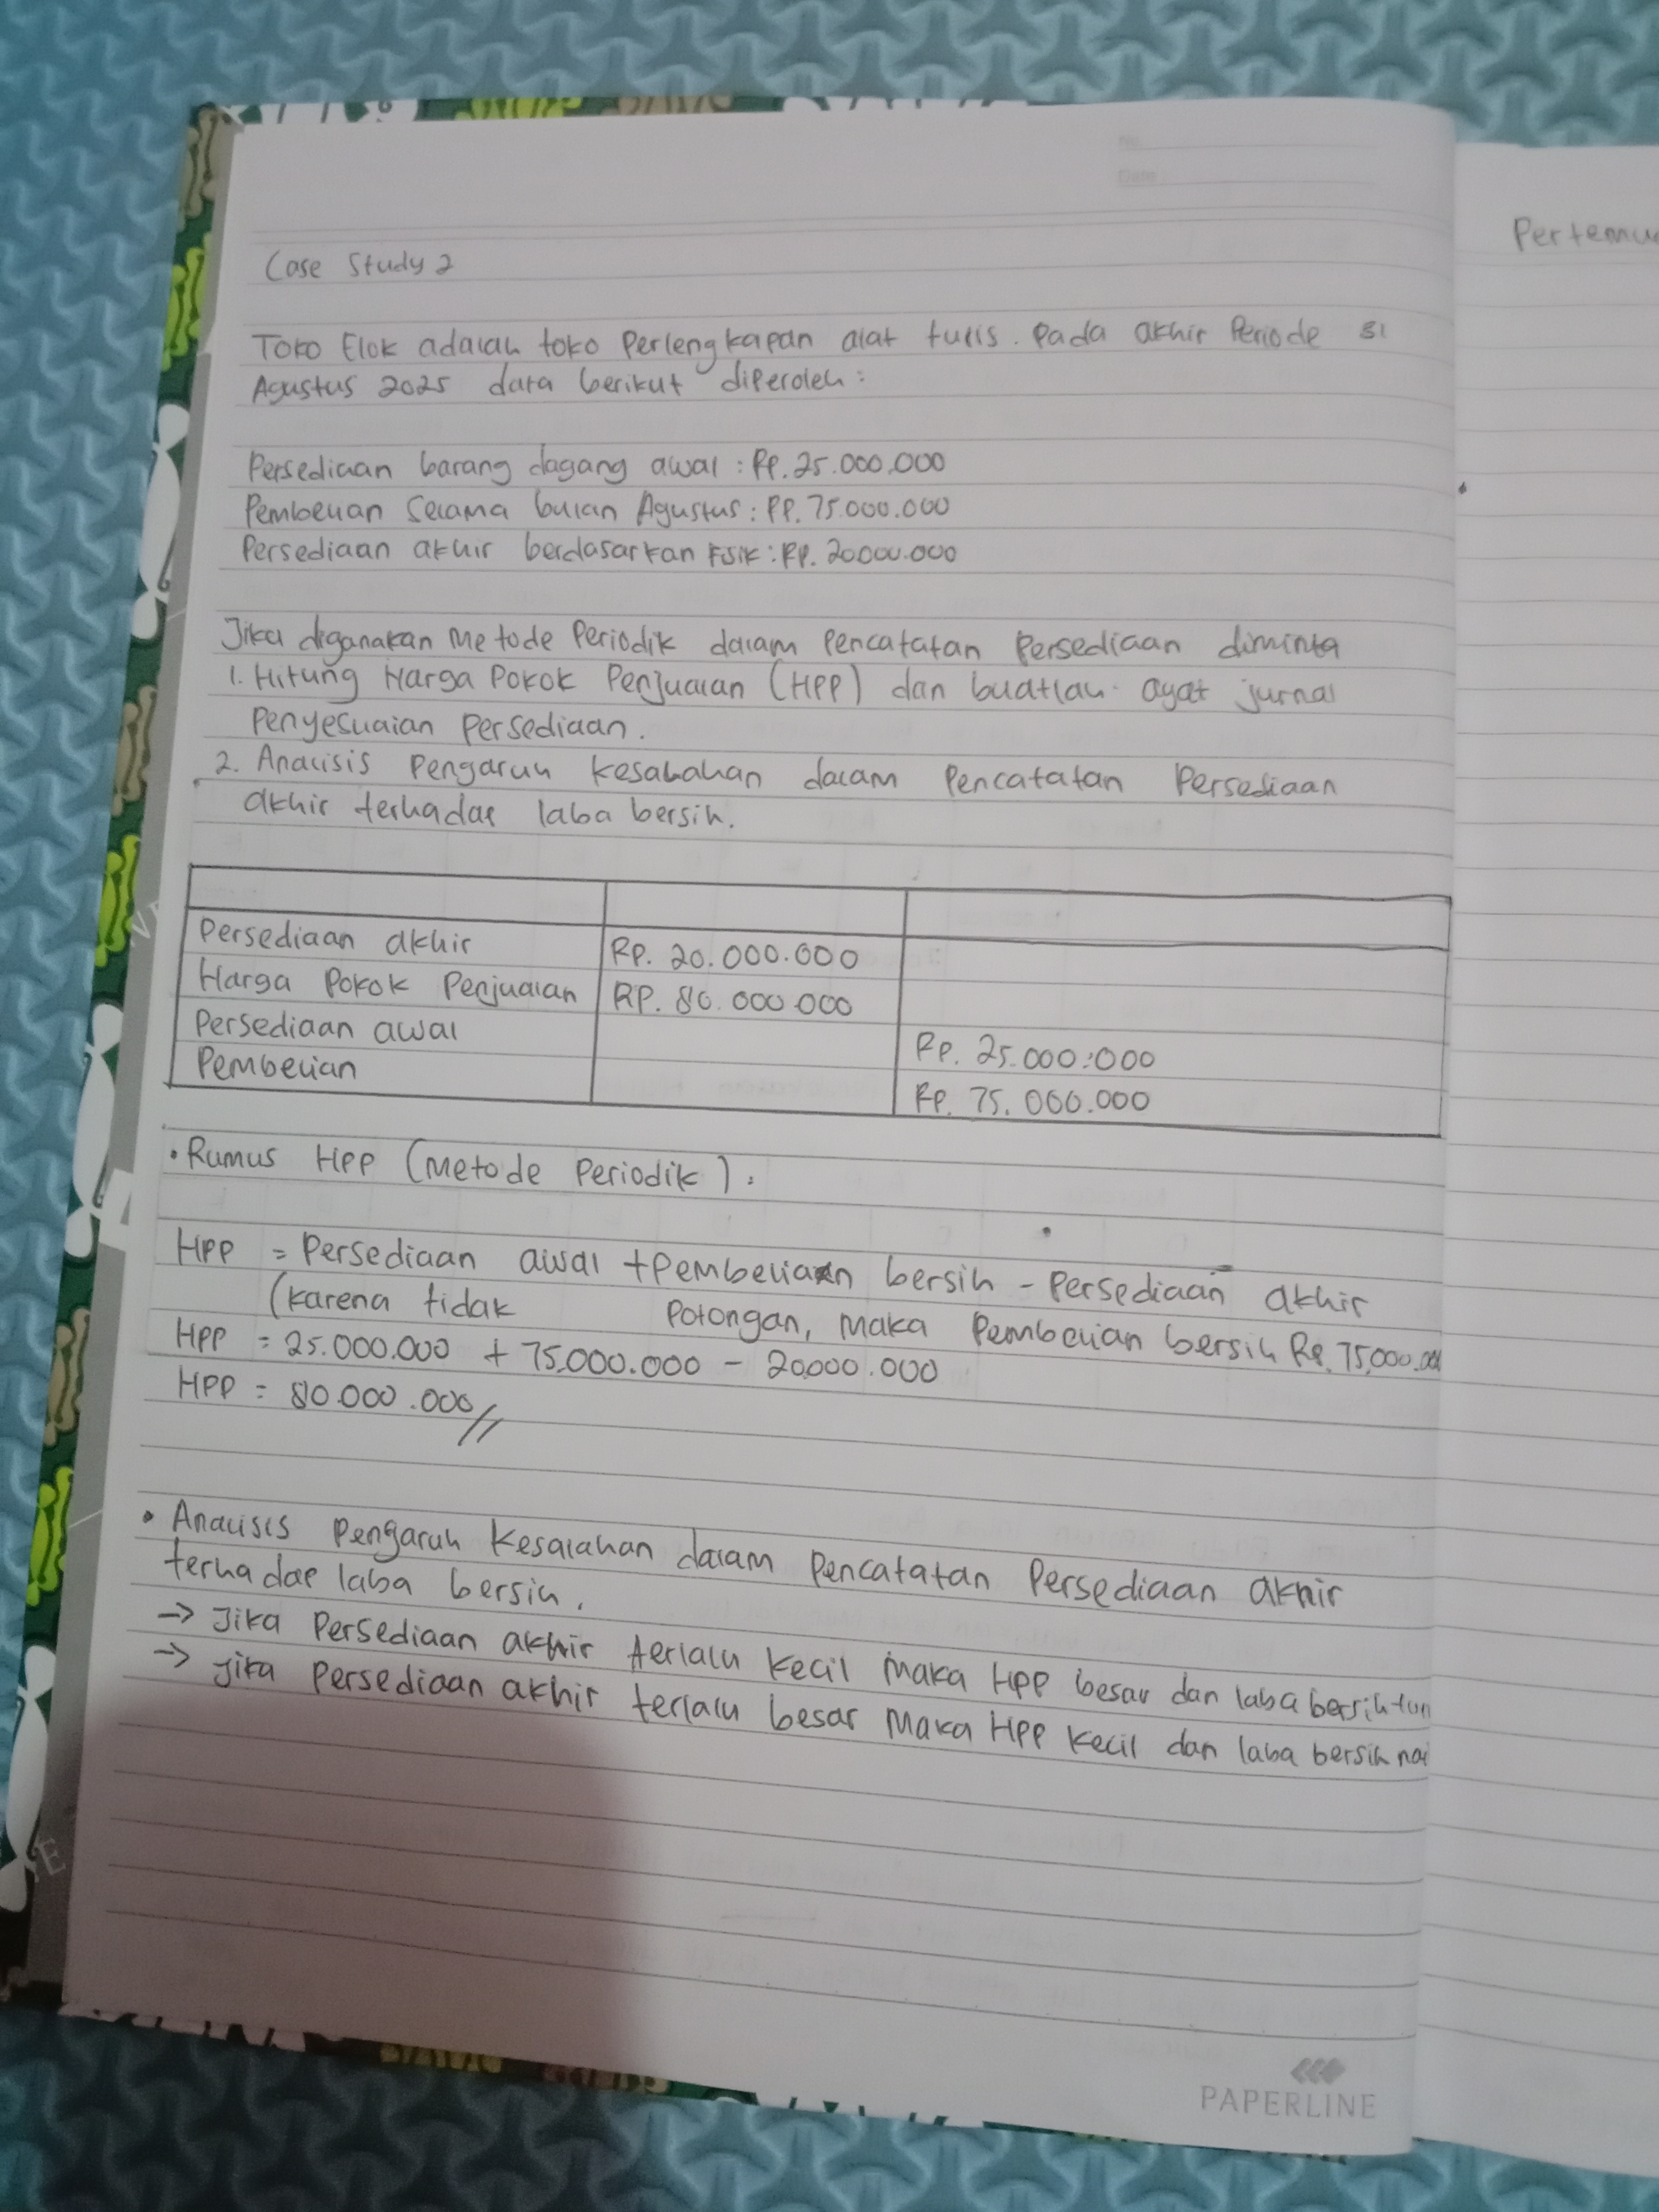 No
Date
Pertemu
Case Study 2
Toko Elok adalah toko Perlengkapan alat tulis. Pada akhir Periode 31
Agustus 2025 data berikut diperoleh:
Persediaan barang dagang awal : Rp. 25.000.000
Pembelian Selama bulan Agustus : RP. 75.000.000
Persediaan akhir berdasarkan Fisik : RP. 20.000.000
Jika diganakan Metode Periodik dalam Pencatatan Persediaan diminta
1. Hitung Harga Pokok Penjualan (HPP) dan buatlah ayat jurnal
Penyesuaian Persediaan.
2. Analisis Pengaruh kesalahan dalam Pencatatan Persediaan
akhir terhadap laba bersih.
Persediaan akhir Rp. 20.000.000
Harga Pokok Penjualan RP. 80.000.000
Persediaan awal Rp. 25.000.000
Pembelian Rp. 75.000.000
• Rumus HPP (Metode Periodik) :
HPP = Persediaan awal + Pembelian bersih - Persediaan akhir
(karena tidak Potongan, Maka Pembelian bersih Rp. 75.000.000
HPP = 25.000.000 + 75.000.000 - 20.000.000
HPP = 80.000.000 //
• Analisis Pengaruh Kesalahan dalam Pencatatan Persediaan akhir
terhadap laba bersih.
→ Jika Persediaan akhir terlalu kecil Maka HPP besar dan laba bersih tur
→ Jika Persediaan akhir terlalu besar Maka HPP kecil dan laba bersih nai
PAPERLINE